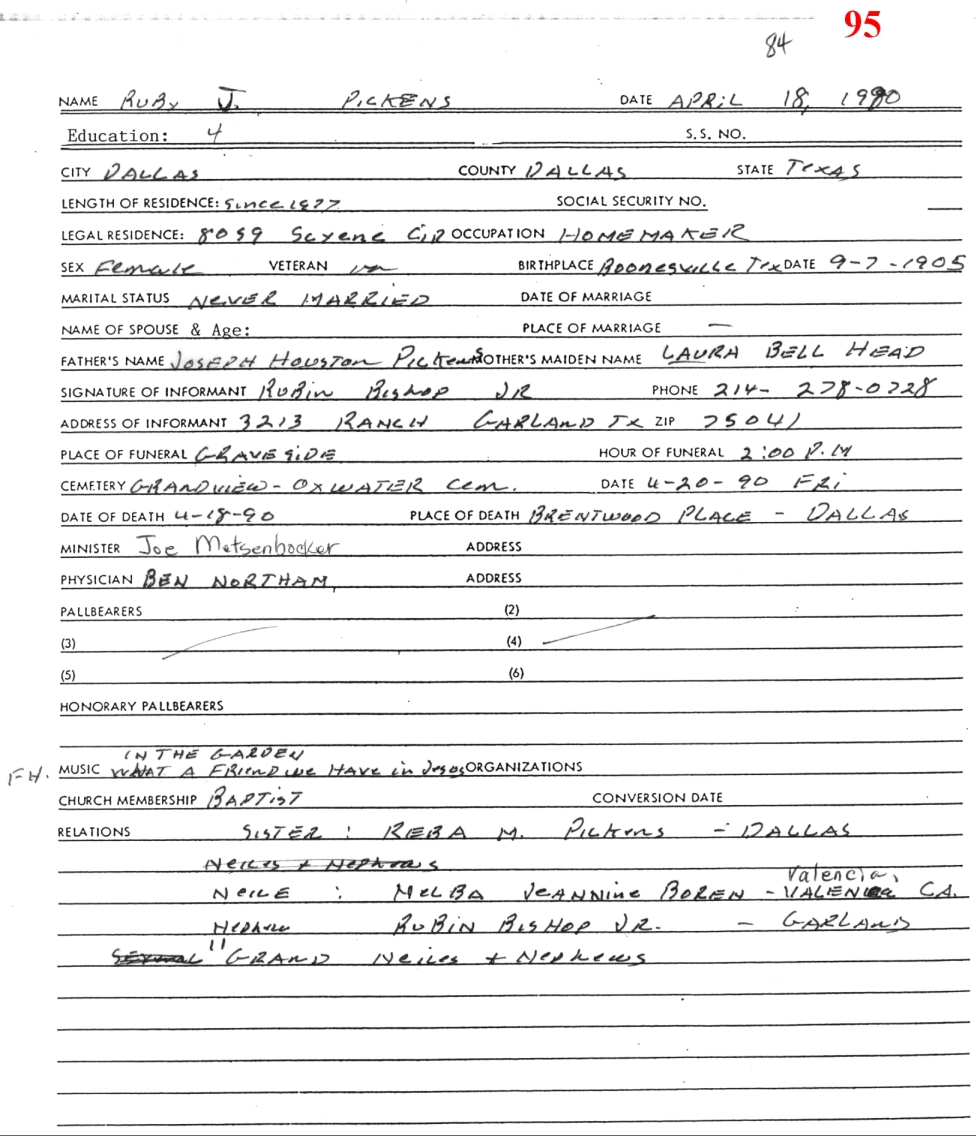 95
84
NAME RUBy J. PICKENS DATE APRIL 18, 1990
Education: 4 S.S. NO.
CITY DALLAS COUNTY DALLAS STATE TEXAS
LENGTH OF RESIDENCE: Since 1977 SOCIAL SECURITY NO.
LEGAL RESIDENCE: 8059 Scyene CIR OCCUPATION HOMEMAKER
SEX Female VETERAN no BIRTHPLACE Boonesville Tex DATE 9-7-1905
MARITAL STATUS NEVER MARRIED DATE OF MARRIAGE
NAME OF SPOUSE & Age: PLACE OF MARRIAGE —
FATHER'S NAME JOSEPH HOUSTON PICKENS MOTHER'S MAIDEN NAME LAURA BELL HEAD
SIGNATURE OF INFORMANT RUBIN BISHOP JR PHONE 214- 278-0728
ADDRESS OF INFORMANT 3213 RANCH GARLAND TX ZIP 75041
PLACE OF FUNERAL GRAVESIDE HOUR OF FUNERAL 2:00 P.M
CEMETERY GRANDVIEW - OXWATER Cem. DATE 4-20-90 FRI
DATE OF DEATH 4-18-90 PLACE OF DEATH BRENTWOOD PLACE - DALLAS
MINISTER Joe Metsenbocker ADDRESS
PHYSICIAN BEN NORTHAM, ADDRESS
PALLBEARERS (2)
(3) (4)
(5) (6)
HONORARY PALLBEARERS
IN THE GARDEN
F.H. MUSIC WHAT A FRIEND WE HAVE in Jesus ORGANIZATIONS
CHURCH MEMBERSHIP BAPTIST CONVERSION DATE
RELATIONS SISTER : REBA M. PICKENS - DALLAS
Neices + Nephews
Valencia,
NEICE : MELBA JEANNINE BOREN - VALENCIA CA.
Nephew RUBIN BISHOP JR. - GARLAND
Several 11 GRAND Neices + Nephews